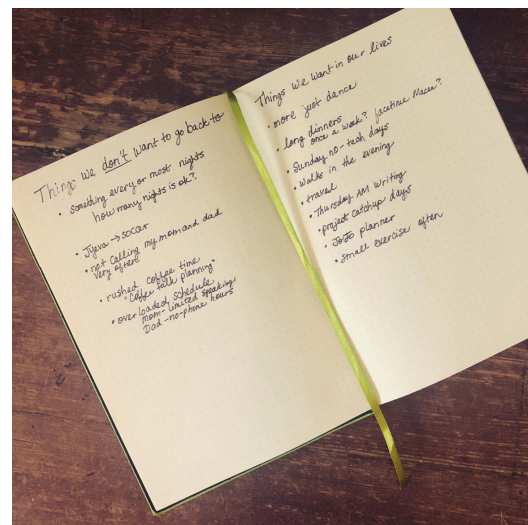 Things we don't want to go back to
• something every or most nights
how many nights is ok?
• Jyeva → soccer
• not calling my mom and dad
very often
• rushed coffee time
"coffee talk planning"
• overloaded schedule
Mom - limited speaking
Dad - no-phone hours
Things we want in our lives
• more just dance
• long dinners
once a week? facetime Macu?
• Sunday no-tech days
• walks in the evening
• travel
• Thursday AM writing
• project catchup days
• JoJo planner
• small exercise often